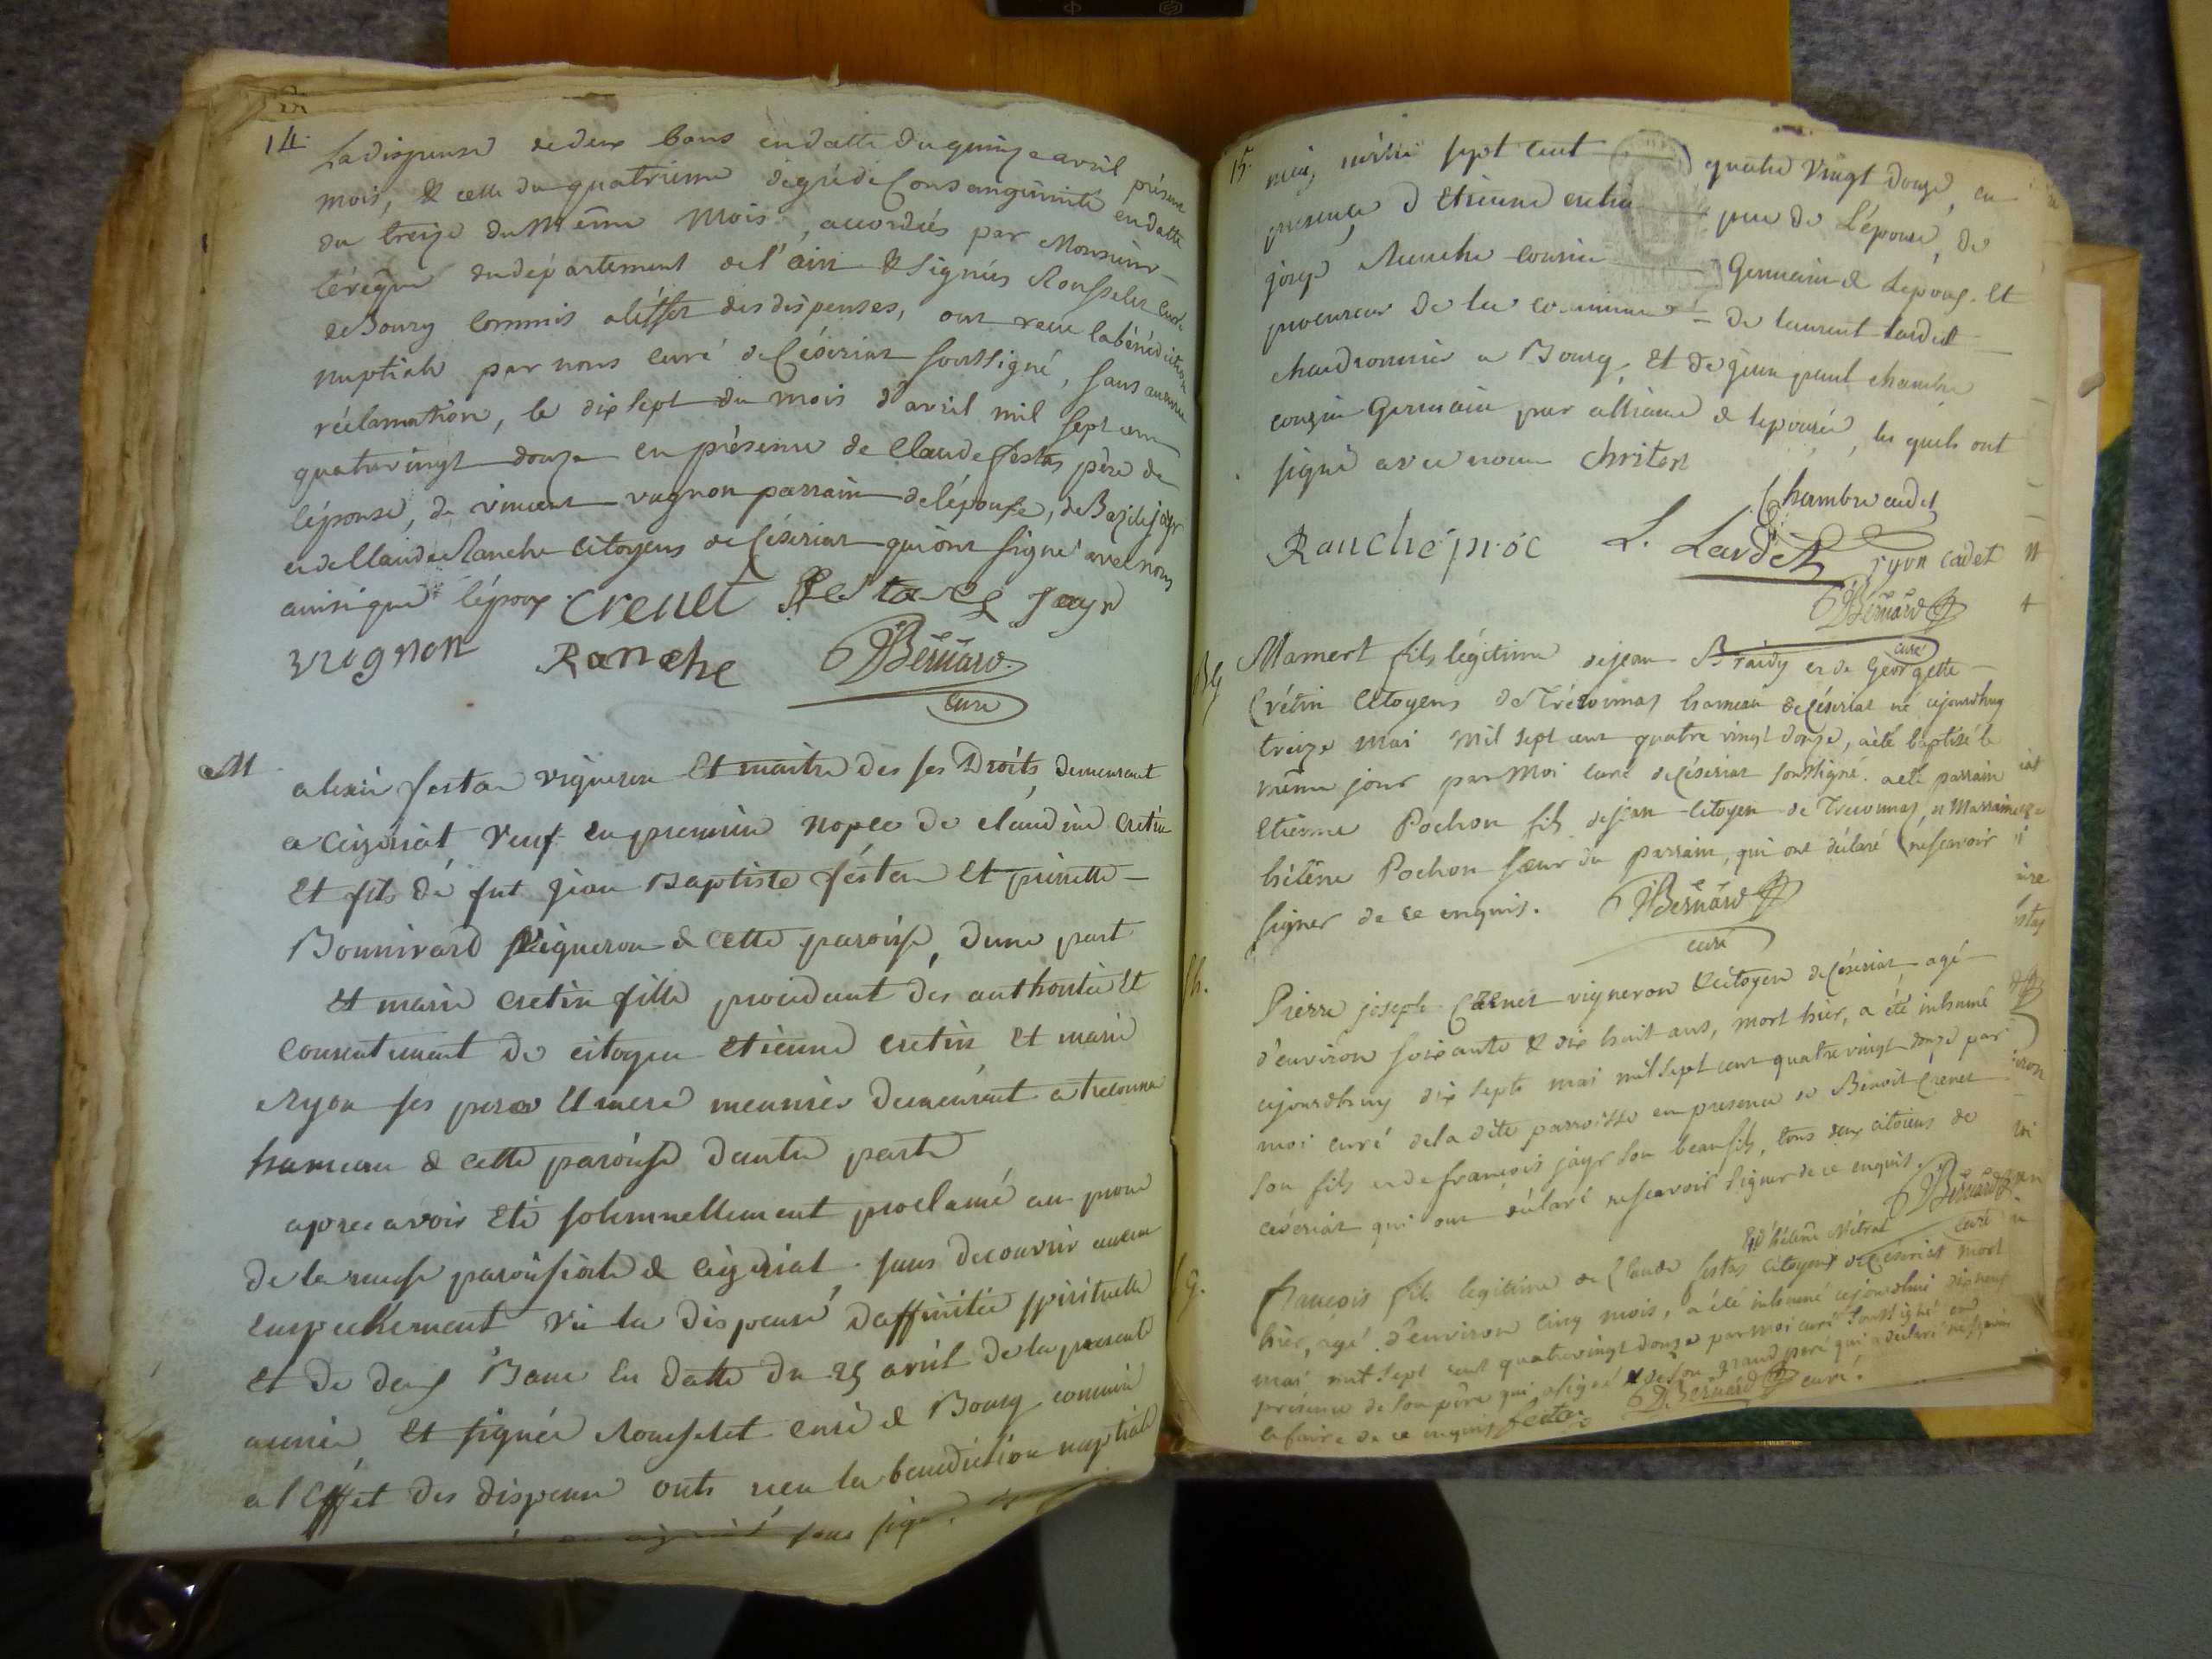 14.
La dispense de deux bans en datte du quinze avril présent
mois, & celle du quatrieme dégré de Consanguinité en datte
du treize du même mois, accordées par Monsieur
l'évêque du département de l'ain & signées Rousselet curé
de Bourg commis à l'effet des dispenses, ont reçu la bénédiction
nuptiale par nous curé de Céseriat soussigné, sans aucune
réclamation, le dix sept du mois d'avril mil sept cent
quatrevingt douze en présence de Claude festas père de
l'épouse, de vincent vugnon parrain de l'épouse, de Bazile jayr
et de Claude Ranche citoyens de Céseriat qui ont signé avec nous
ainsi que l'époux. Crenet festas jayr
vugnon Ranche Bernard
curé
M
alexis festas vigneron Et maitre des ses Droits demeurant
a Cezeriat Veuf en premiere nopce de claudine cretin
Et fils de fut jean Baptiste festas Et pierrette
Bonnivard Vigneron & cette paroisse, dune part
Et marie cretin fille procedant des authorité Et
consentement de citoyen Etienne cretin Et marie
ryon ses pere Et mere meunier demeurant a treconna
hameau & cette paroisse dautre parte
apres avoir Eté solemnellement proclamé au prone
de la messe paroissiale & cezeriat sans decouvrir aucun
empechement vu la dispense daffinitée spirituelle
Et de deux Banc En datte du 25 avril de la presente
année Et signée Rousselet curé & Bourg commis
a l'Effet des dispense onts reçu la benediction nuptiale
sous signé
15.
mai, mille sept cent quatre Vingt douze, en
presence d Etienne cretin pere de L'épouse, de
josep Ranche cousin Germain & Lépoux. Et
procureur de la commune de laurent lardet
chaudronnier a Bourg, Et de jean paul chambre
cousin Germain par alliance & lepousée, les quels ont
signé avec nous christen
Chambre cadet
Ranche proc L. Lardet ryon cadet
Bernard
curé
B G
Mamert fils légitime de jean Braidy et de Georgette
Crétin Citoyens de Tréconnas hameau de Céseriat né cejourdhuy
treize mai mil sept cent quatre vingt douze, a été baptisé le
même jour par moi curé de Céseriat soussigné. a été parrain
Etienne Pochon fils de jean citoyen de Treconnas, et Marraine
hélène Pochon sœur du parrain, qui ont déclaré ne scavoir
signer de ce enquis. Bernard
curé
Pierre joseph Crenet vigneron & citoyen de Céseriat agé
d'environ soixante & dix huit ans, mort hier, a été inhumé
cejourdhuy dix sept mai mil sept cent quatre vingt douze par
moi curé de la dite parroisse en presence de Benoit Crenet
son fils et de françois jayr son beaufils, tous deux citoiens de
Céseriat qui ont déclaré ne scavoir signer de ce enquis. Bernard
curé
& d'hélène Nétral
G.
françois fils legitime de Claude festas citoyens de Céseriat mort
hier, agé d'environ cinq mois, a été inhumé cejourdhui dix neuf
mai mil sept cent quatrevingt douze par moi curé soussigné en
présence de son père qui a signé & de son grand pere qui a déclaré ne scavoir
le faire de ce enquis festas Bernard curé.